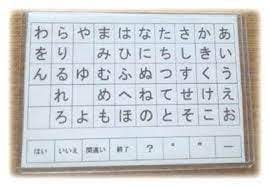 あいうえお
かきくけこ
さしすせそ
たちつてと
なにぬねの
はひふへほ
まみむめも
やゆよ
らりるれろ
わをん
はい いいえ 間違い 終了 ? ゛ ゜ ー